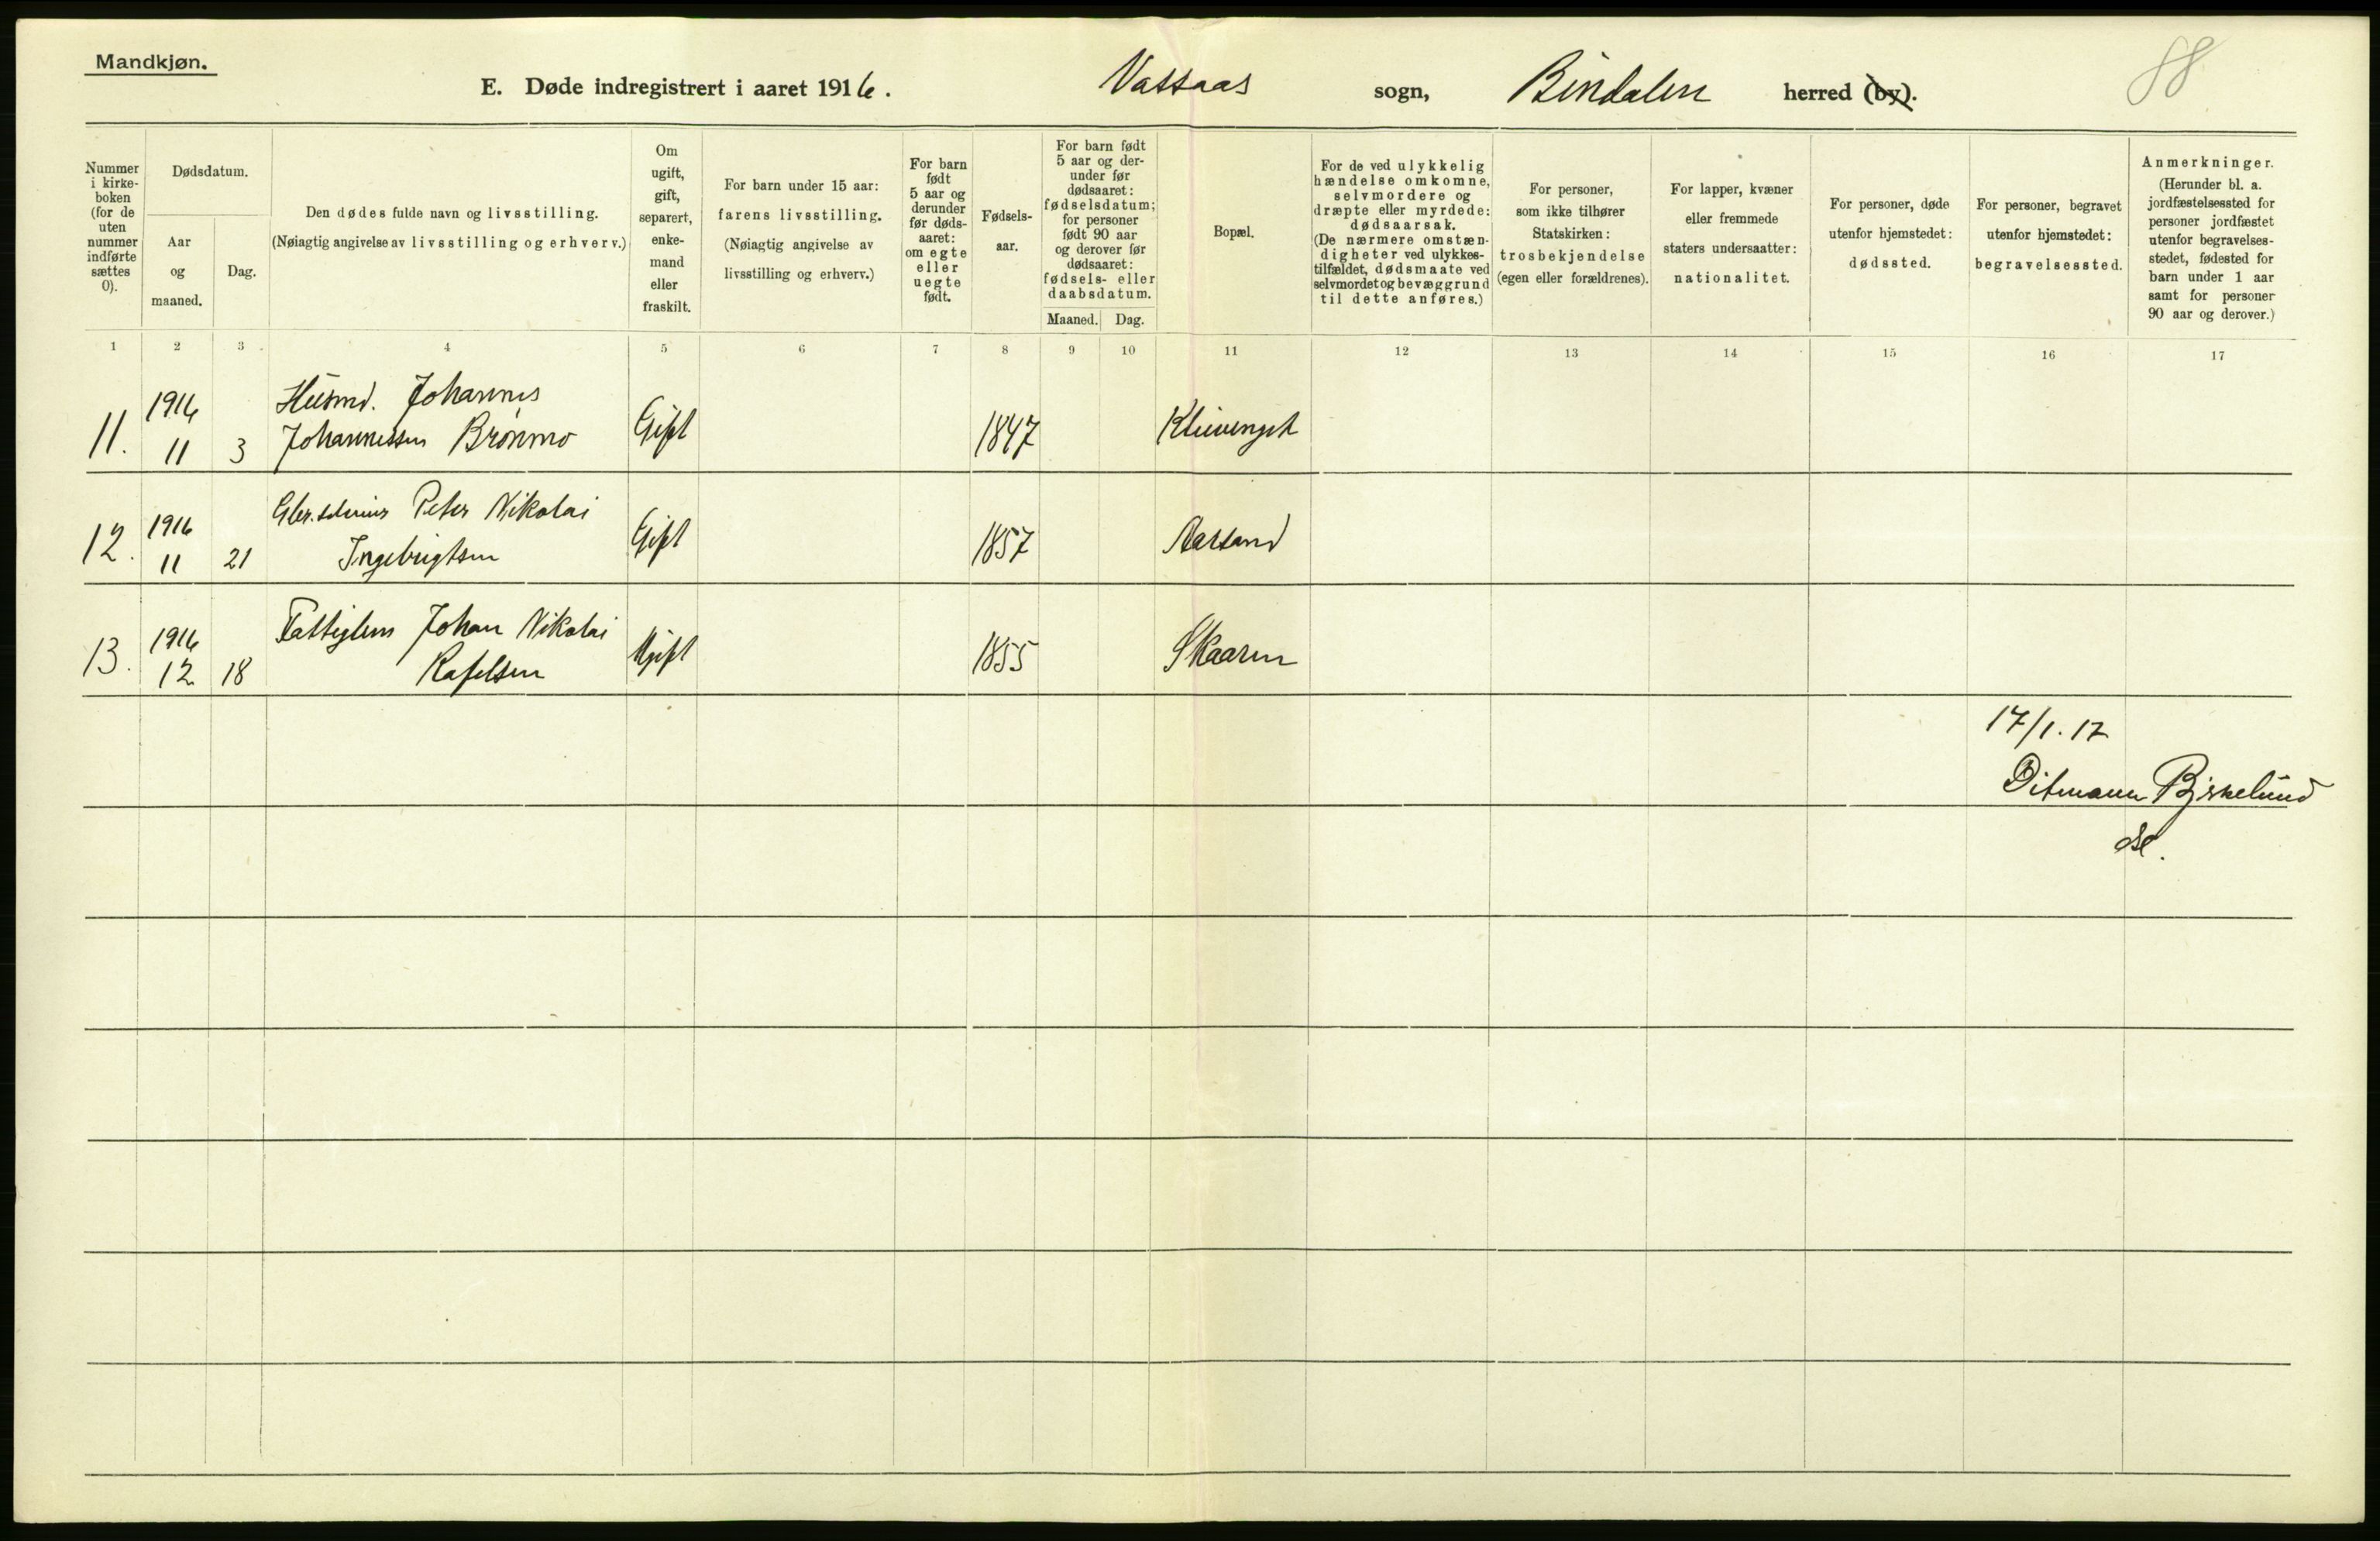 Mandkjøn.
E. Døde indregistrert i aaret 1916. Vassaas sogn, Bindalen herred (by).
88
Nummer
i kirke-
boken
(for de
uten
nummer
indførte
sættes
0).
Dødsdatum.
Aar
og
maaned.
Dag.
Den dødes fulde navn og livsstilling.
(Nøiagtig angivelse av livsstilling og erhverv.)
Om
ugift,
gift,
separert,
enke-
mand
eller
fraskilt.
For barn under 15 aar:
farens livsstilling.
(Nøiagtig angivelse av
livsstilling og erhverv.)
For barn
født
5 aar og
derunder
før døds-
aaret:
om egte
eller
uegte
født.
Fødsels-
aar.
For barn født
5 aar og der-
under før
dødsaaret:
fødselsdatum;
for personer
født 90 aar
og derover før
dødsaaret:
fødsels- eller
daabsdatum.
Maaned. Dag.
Bopæl.
For de ved ulykkelig
hændelse omkomne,
selvmordere og
dræpte eller myrdede:
dødsaarsak.
(De nærmere omstæn-
digheter ved ulykkes-
tilfældet, dødsmaate ved
selvmordet og bevæggrund
til dette anføres.)
For personer,
som ikke tilhører
Statskirken:
trosbekjendelse
(egen eller forældrenes).
For lapper, kvæner
eller fremmede
staters undersaatter:
nationalitet.
For personer, døde
utenfor hjemstedet:
dødssted.
For personer, begravet
utenfor hjemstedet:
begravelsessted.
Anmerkninger.
(Herunder bl. a.
jordfæstelsessted for
personer jordfæstet
utenfor begravelses-
stedet, fødested for
barn under 1 aar
samt for personer
90 aar og derover.)
1 2 3 4 5 6 7 8 9 10 11 12 13 14 15 16 17
1916 Husmd. Johannes
11. 11 3 Johannessen Brønmo Gift 1847
1916 Peter Nikolai
12. 11 21 Ingebrigtsen Gift 1857 Aarsand
1916 Fattiglem Johan Nikolai
13. 12 18 Rafelsen Ugift 1855 Skaaren
17/1. 17
Ditmann Birkelund